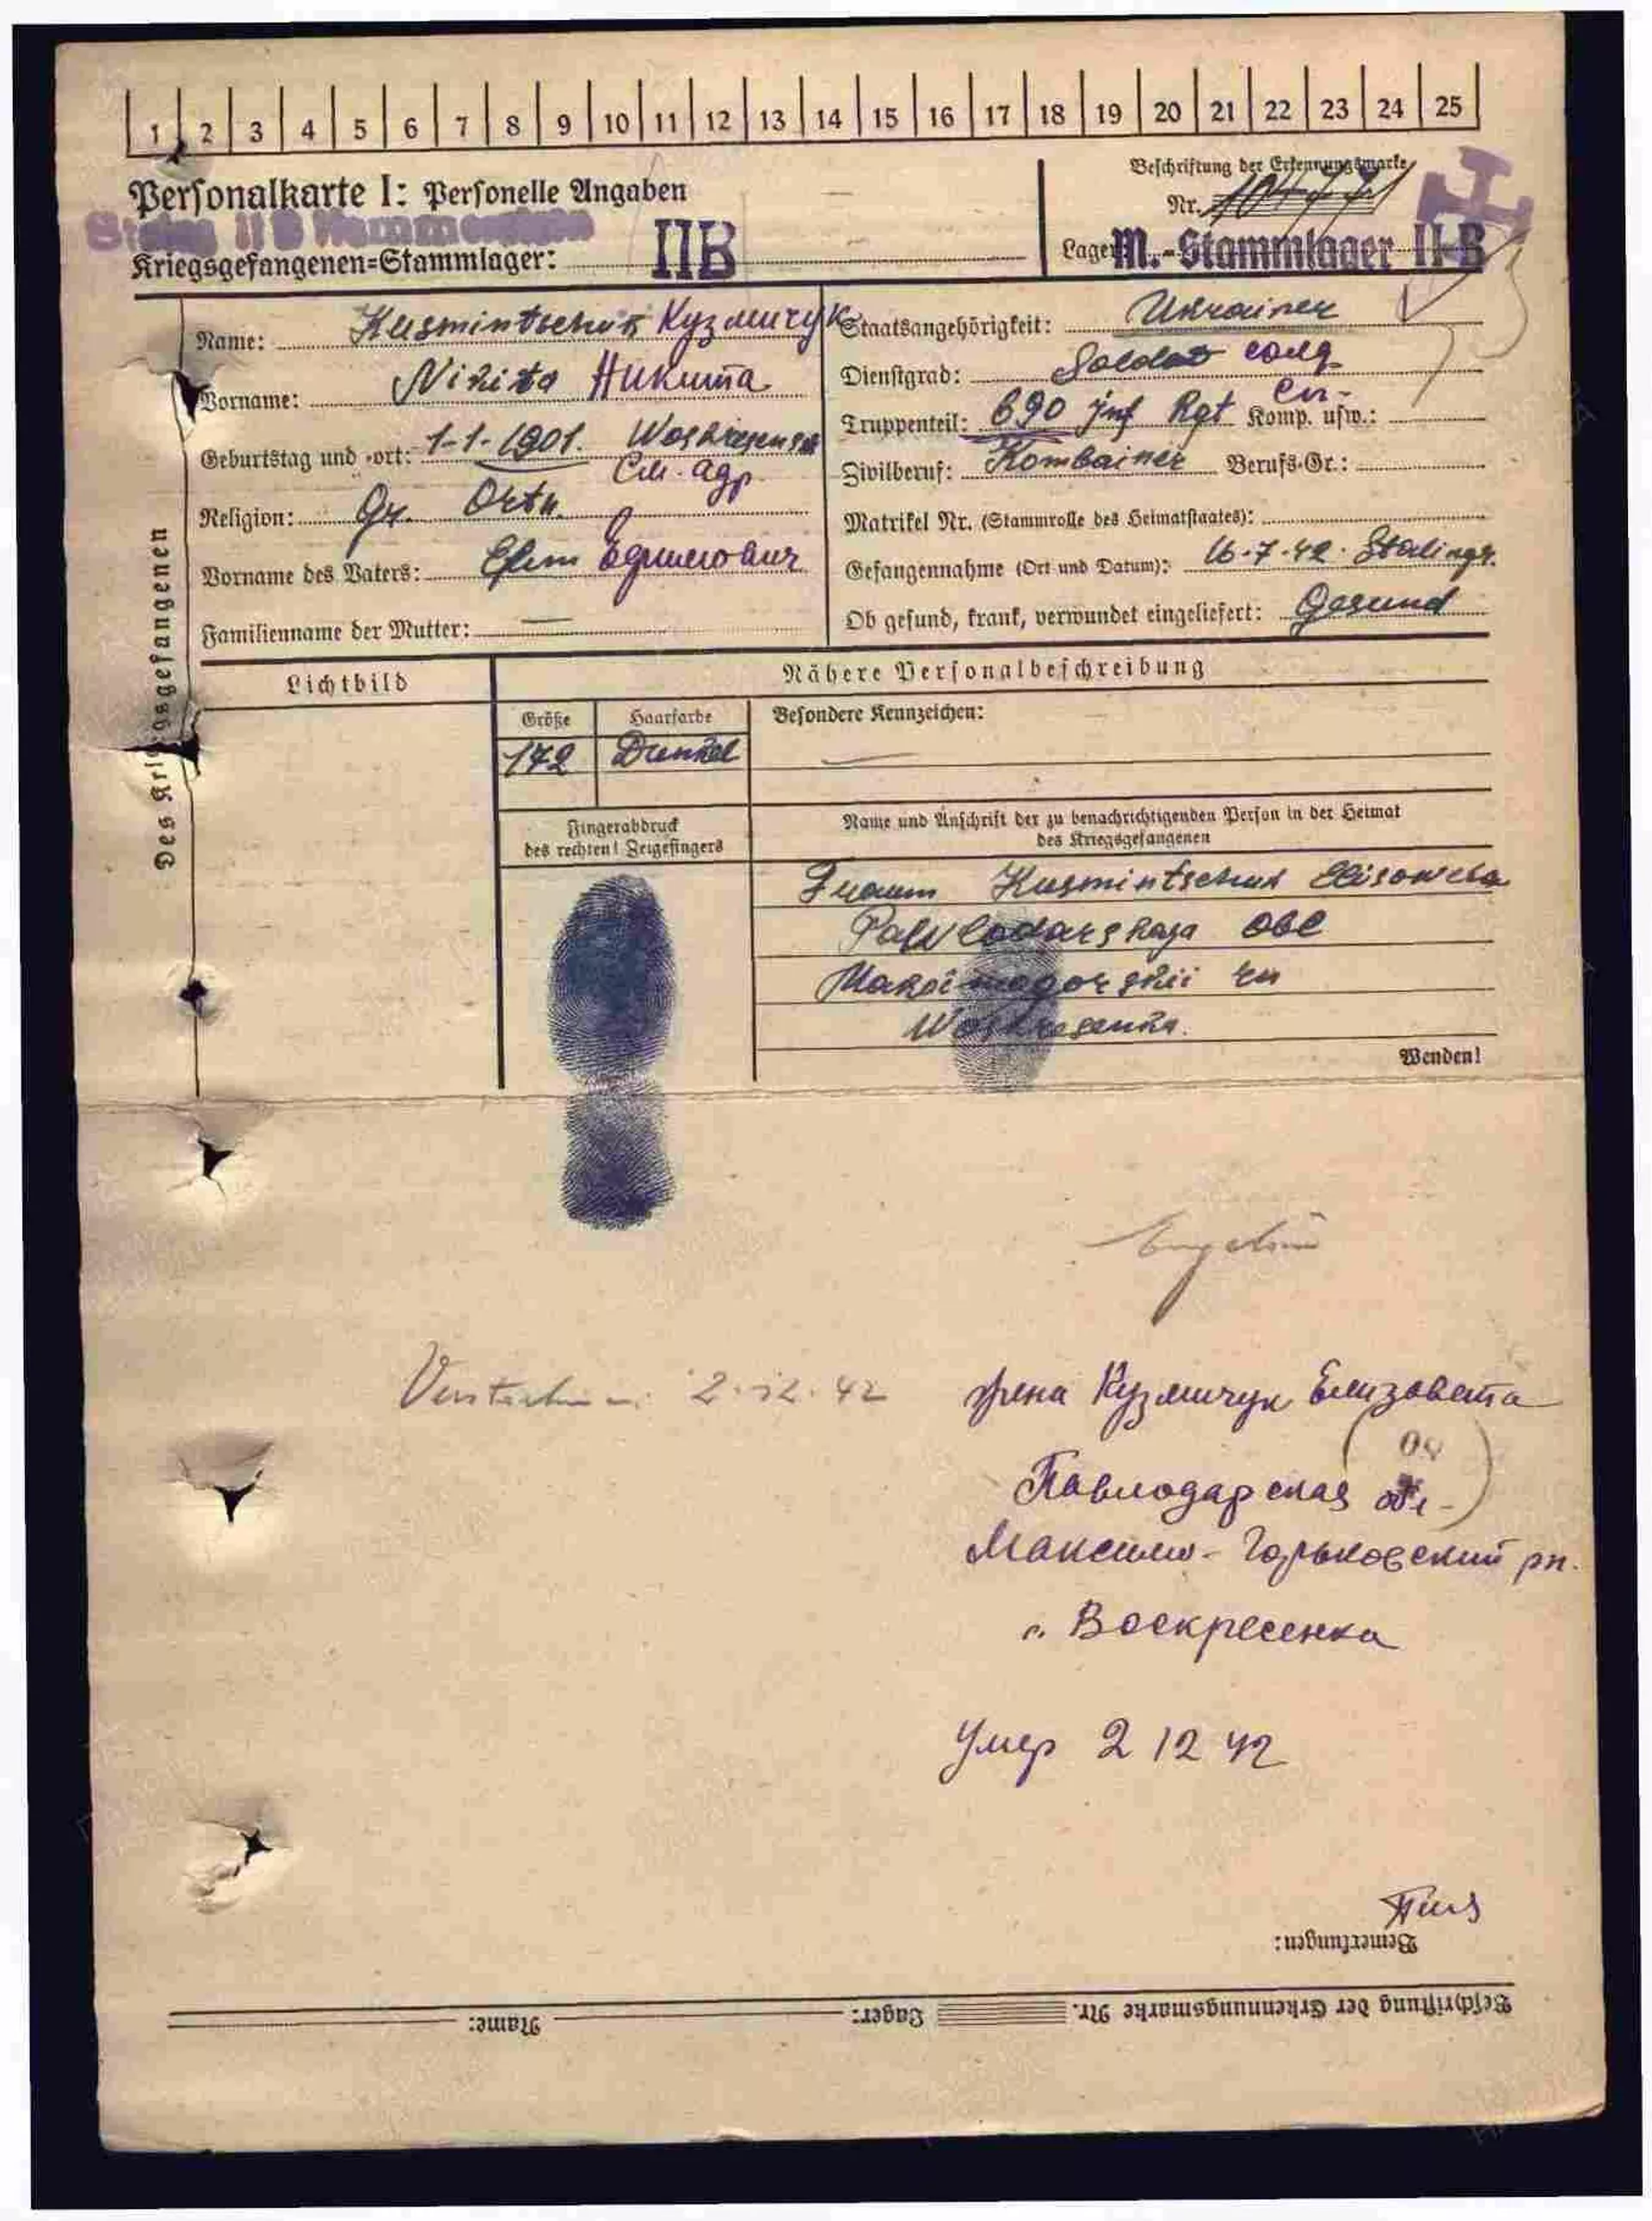 1 2 3 4 5 6 7 8 9 10 11 12 13 14 15 16 17 18 19 20 21 22 23 24 25
Personalkarte I: Personelle Angaben
Beschriftung der Erkennungsmarke
Nr.
Stalag II B Hammerstein
Kriegsgefangenen=Stammlager: IIB
Lager: M.-Stammlager II B
Des Kriegsgefangenen
Name: Kusmintschuk Кузмичук
Vorname: Nikita Никита
Geburtstag und -ort: 1-1-1901. Woskresensk
См. адр.
Religion: Gr. Orth.
Vorname des Vaters: Efim Ефимович
Familienname der Mutter: —
Staatsangehörigkeit: Ukrainer
Dienstgrad: Soldat солд
Truppenteil: 690 Inf Rgt Komp. usw.:
Zivilberuf: Kombainer Berufs-Gr.:
Matrikel Nr. (Stammrolle des Heimatstaates):
Gefangennahme (Ort und Datum): 16-7-42. Stalingr.
Ob gesund, krank, verwundet eingeliefert: Gesund
Lichtbild
Nähere Personalbeschreibung
Größe Haarfarbe Besondere Kennzeichen:
172 Dunkel —
Fingerabdruck
des rechten! Zeigefingers
Name und Anschrift der zu benachrichtigenden Person in der Heimat
des Kriegsgefangenen
Kusmintschuk Elisoweta
Pawlodarskaja Obl
Maksimogorskii rn
Woskresenka.
Wenden!
2.12.42
жена Кузмичук Елизовета
Павлодарская обл-
Максимо-Горьковский рн.
с. Воскресенка
Умер 2 12 42
Bemerkungen:
Beschriftung der Erkennungsmarke Nr. Lager: Name: